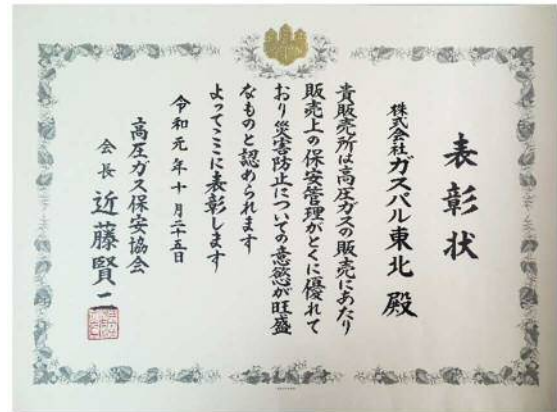 表彰状
株式会社ガスパル東北 殿
貴販売所は高圧ガスの販売にあたり
販売上の保安管理がとくに優れて
おり災害防止についての意慾が旺盛
なものと認められます
よってここに表彰します
令和元年十月二十五日
高圧ガス保安協会
会長 近藤賢二